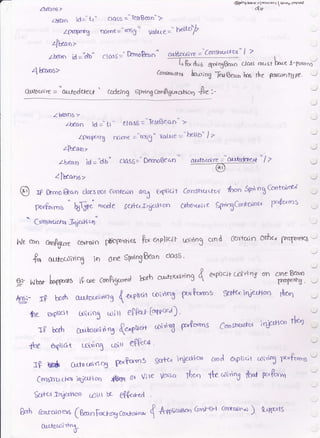 <beans>
<bean id="tb" class="TestBean">
<property name="msg" value="hello"/>
</bean>
<bean id="db" class="DemoBean" autowire="constructor"/>
</beans>
For this spring Bean class must have 1-param
Constructor having TestBean has the parameter type.
autowire="autodetect" coding spring configuration file :-
<beans>
<bean id="tb" class="TestBean">
<property name="msg" value="hello"/>
</bean>
<bean id="db" class="DemoBean" autowire="autodetect"/>
</beans>
If Demo Bean class not contain any explicit constructor then Spring Container
performs "byType" mode setter Injection otherwise Spring Container performs
"Constructor Injection"
We can configure certain properties for explicit wiring and certain other properties
for autowiring in one Spring Bean class.
What happens if we configured both autowiring & explicit wiring on one Bean
property.
Ans:- If both autowiring & explicit wiring performs setter injection then
the explicit wiring will effect
If both autowiring & explicit wiring performs Constructor injection then
the explicit wiring will effect.
If autowiring performs setter injection and explicit wiring performs
Constructor injection or vice versa then the wiring that perform
Setter Injection will be effected.
Both Containers (BeanFactory Container & Application Context Container) supports
autowiring.